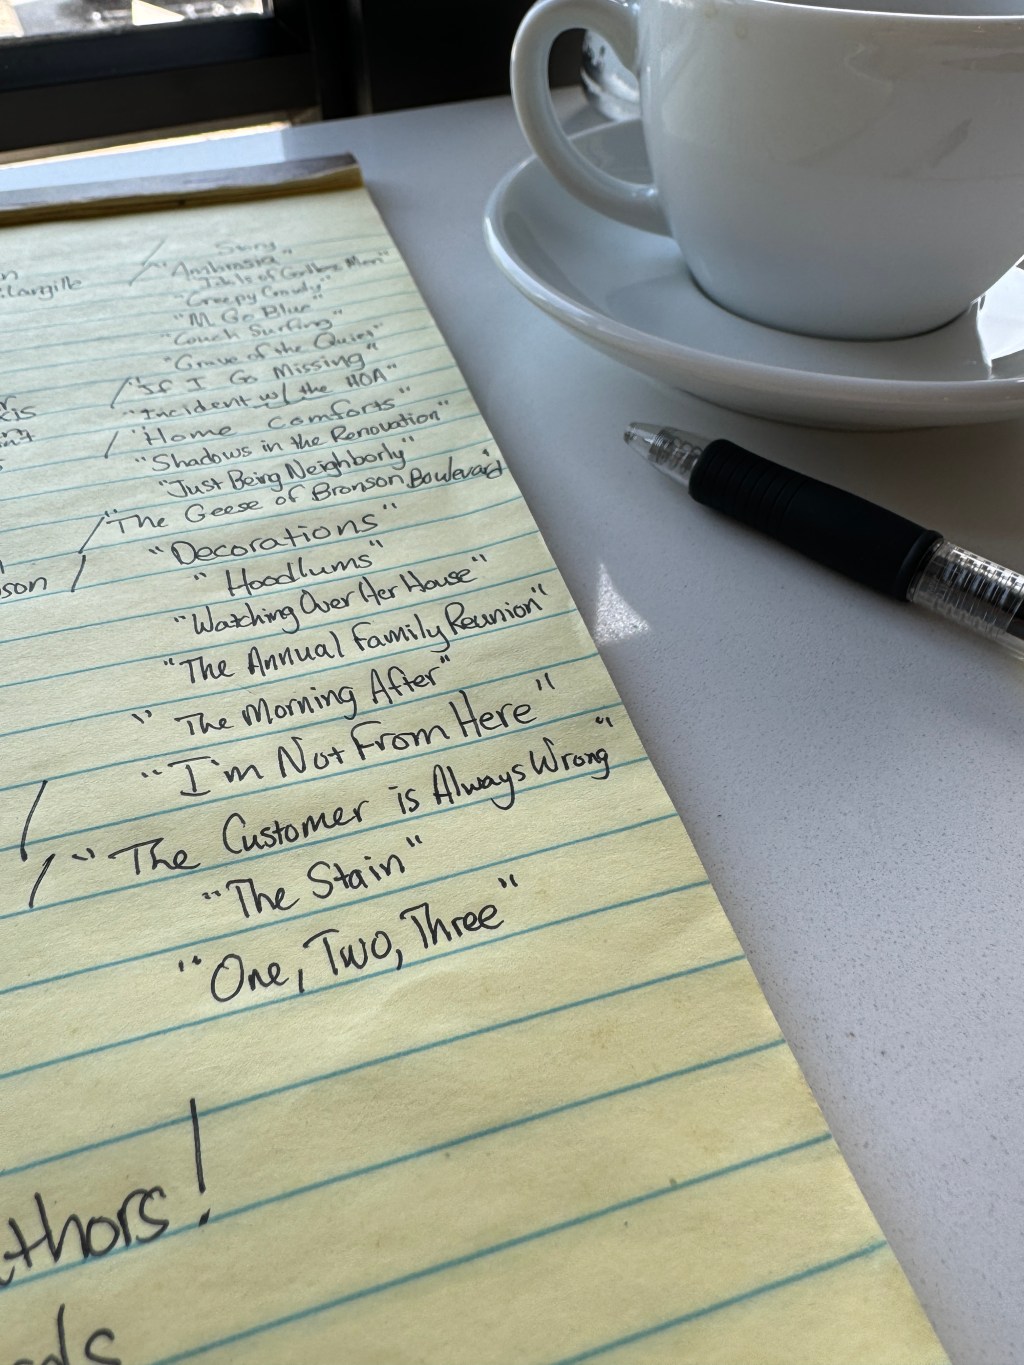 Story
"Ambrosia"
"Idols of Godless Men"
"Creepy Crawly"
"M Go Blue"
"Couch Surfing"
"Grave of the Quiet"
"If I Go Missing"
"Incident w/ the HOA"
"Home Comforts"
"Shadows in the Renovation"
"Just Being Neighborly"
"The Geese of Bronson Boulevard"
"Decorations"
son / "Hoodlums"
"Watching Over Her House"
"The Annual Family Reunion"
"The Morning After"
"I'm Not From Here"
/ "The Customer is Always Wrong"
/ "The Stain"
"One, Two, Three"
thors!
ds